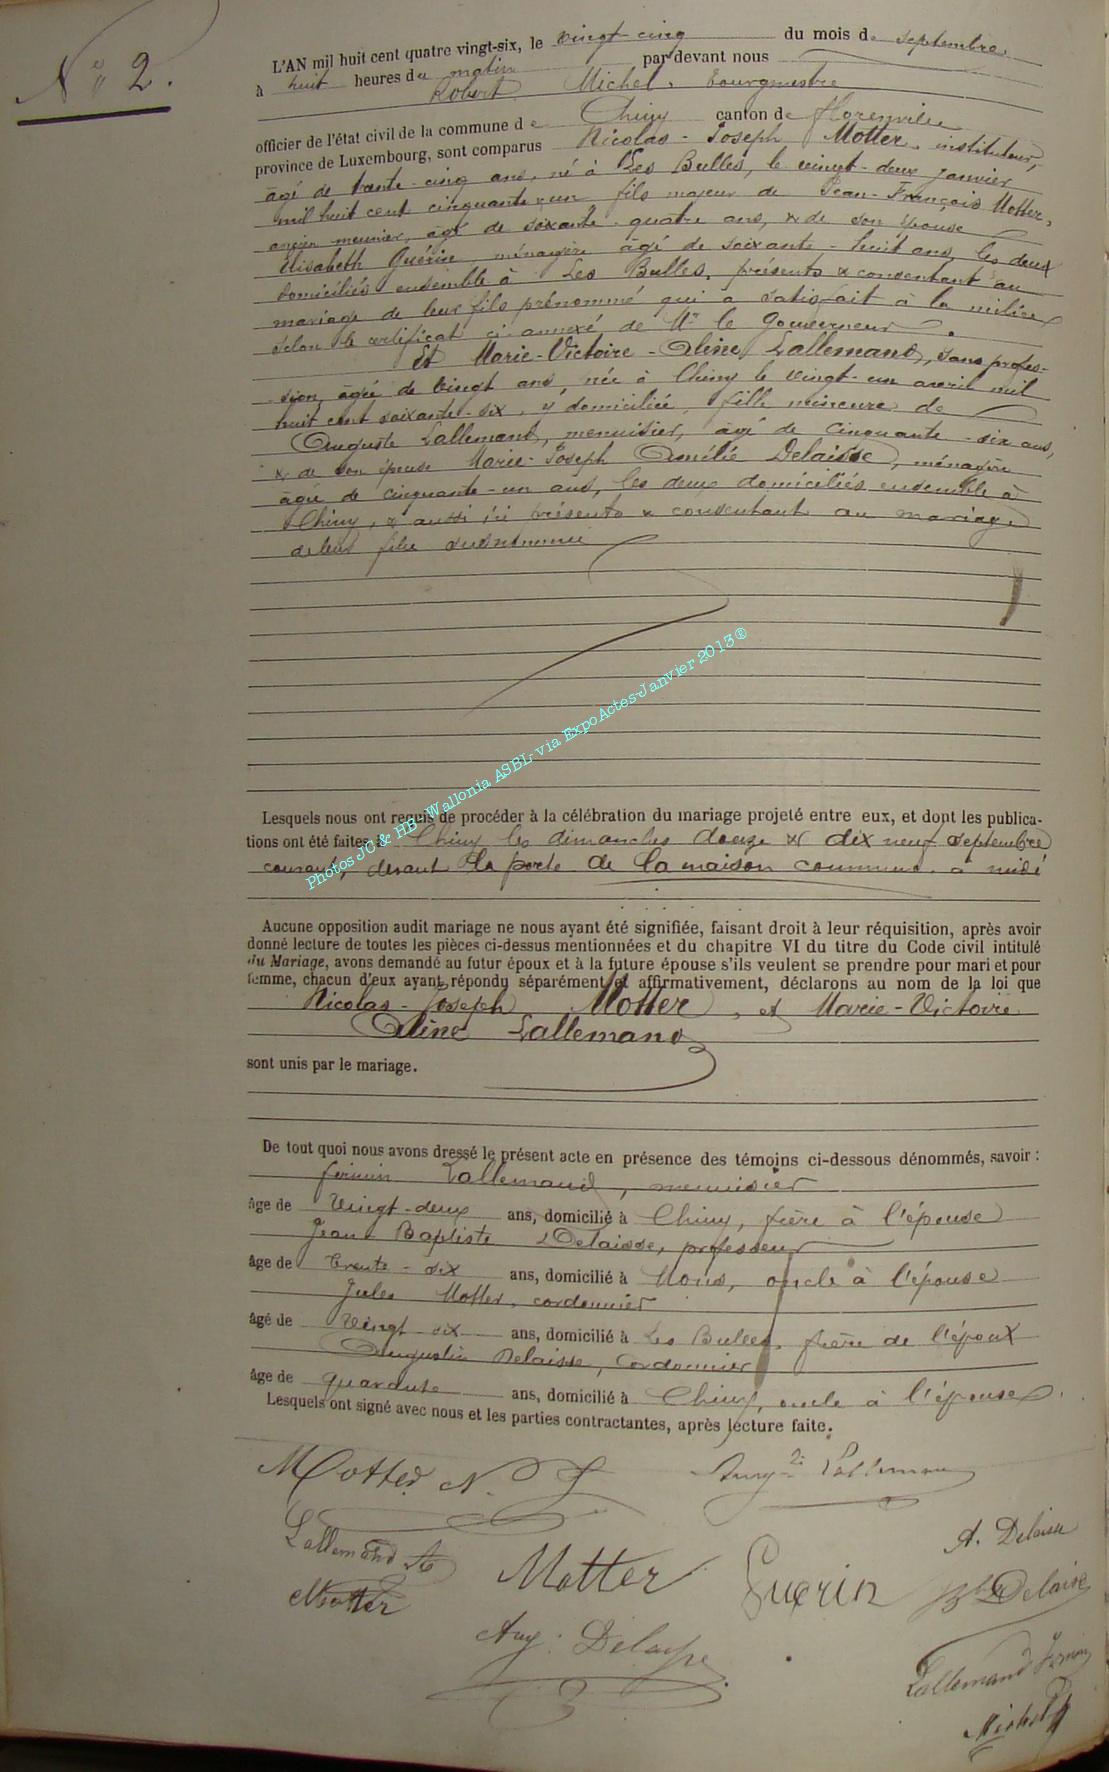 N° 2.
L'AN mil huit cent quatre vingt-six, le vingt-cinq du mois de septembre
à huit heures du matin par devant nous
Robert Michel, bourgmestre
officier de l'état civil de la commune de Chiny canton de Florenville
province de Luxembourg, sont comparus Nicolas-Joseph Motter, instituteur,
âgé de trente-cinq ans, né à Les Bulles, le vingt-deux janvier
mil huit cent cinquante & un fils majeur de Jean-François Motter,
ancien meunier, âgé de soixante-quatre ans, & de son épouse
Elisabeth Guérin, ménagère âgé de soixante-huit ans, les deux
domiciliés ensemble à Les Bulles, présents & consentant au
mariage de leur fils prénommé qui a satisfait à la milice
selon le certificat ci-annexé de Mr le Gouverneur.
Et Marie-Victoire-Aline Lallemand, sans profes-
sion, âgée de vingt ans, née à Chiny le vingt-un avril mil
huit cent soixante-six, y domiciliée, fille mineure de
Auguste Lallemand, menuisier, âgé de cinquante-six ans,
& de son épouse Marie-Joseph Amélie Delaisse, ménagère
âgée de cinquante-un ans, les deux domiciliés ensemble à
Chiny, & aussi ici présents & consentant au mariage
de leur fille susnommée
Lesquels nous ont requis de procéder à la célébration du mariage projeté entre eux, et dont les publica-
tions ont été faites à Chiny les dimanches douze & dix neuf septembre
courant, devant la porte de la maison commune, à midi
Aucune opposition audit mariage ne nous ayant été signifiée, faisant droit à leur réquisition, après avoir
donné lecture de toutes les pièces ci-dessus mentionnées et du chapitre VI du titre du Code civil intitulé
du Mariage, avons demandé au futur époux et à la future épouse s'ils veulent se prendre pour mari et pour
femme, chacun d'eux ayant répondu séparément et affirmativement, déclarons au nom de la loi que
Nicolas-Joseph Motter, et Marie-Victoire
Aline Lallemand
sont unis par le mariage.
De tout quoi nous avons dressé le présent acte en présence des témoins ci-dessous dénommés, savoir :
Firmin Lallemand, menuisier
âge de vingt-deux ans, domicilié à Chiny, frère à l'épouse
Jean Baptiste Delaisse, professeur
âge de trente-six ans, domicilié à Mons, oncle à l'épouse
Jules Motter, cordonnier
âgé de vingt six ans, domicilié à Les Bulles, frère de l'époux
Augustin Delaisse, cordonnier
âge de quarante ans, domicilié à Chiny, oncle à l'épouse.
Lesquels ont signé avec nous et les parties contractantes, après lecture faite.
Motter N. J
Lallemand
Lallemand A
A. Delaisse
Motter
Motter
Guerin
Delaisse
Aug. Delaisse
Lallemand Firmin
Michel
Photos JC & HB - Wallonia ASBL via ExpoActes-Janvier 2013®